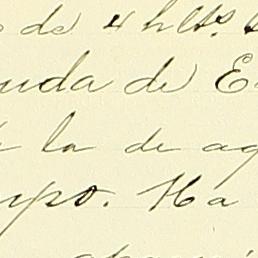 de 4 hlts.
uda de E
la de ag
upo. Ha